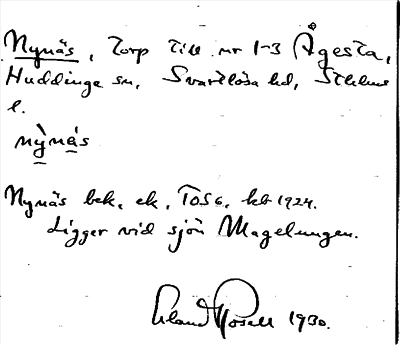 Nynäs, Torp till nr 1-3 Ågesta,
Huddinge sn, Svartlösa hd, Sthlms
l.
nỳnás
Nynäs bek. ek. T056, kb 1924.
Ligger vid sjön Magelungen.
Erland Rosell 1930.